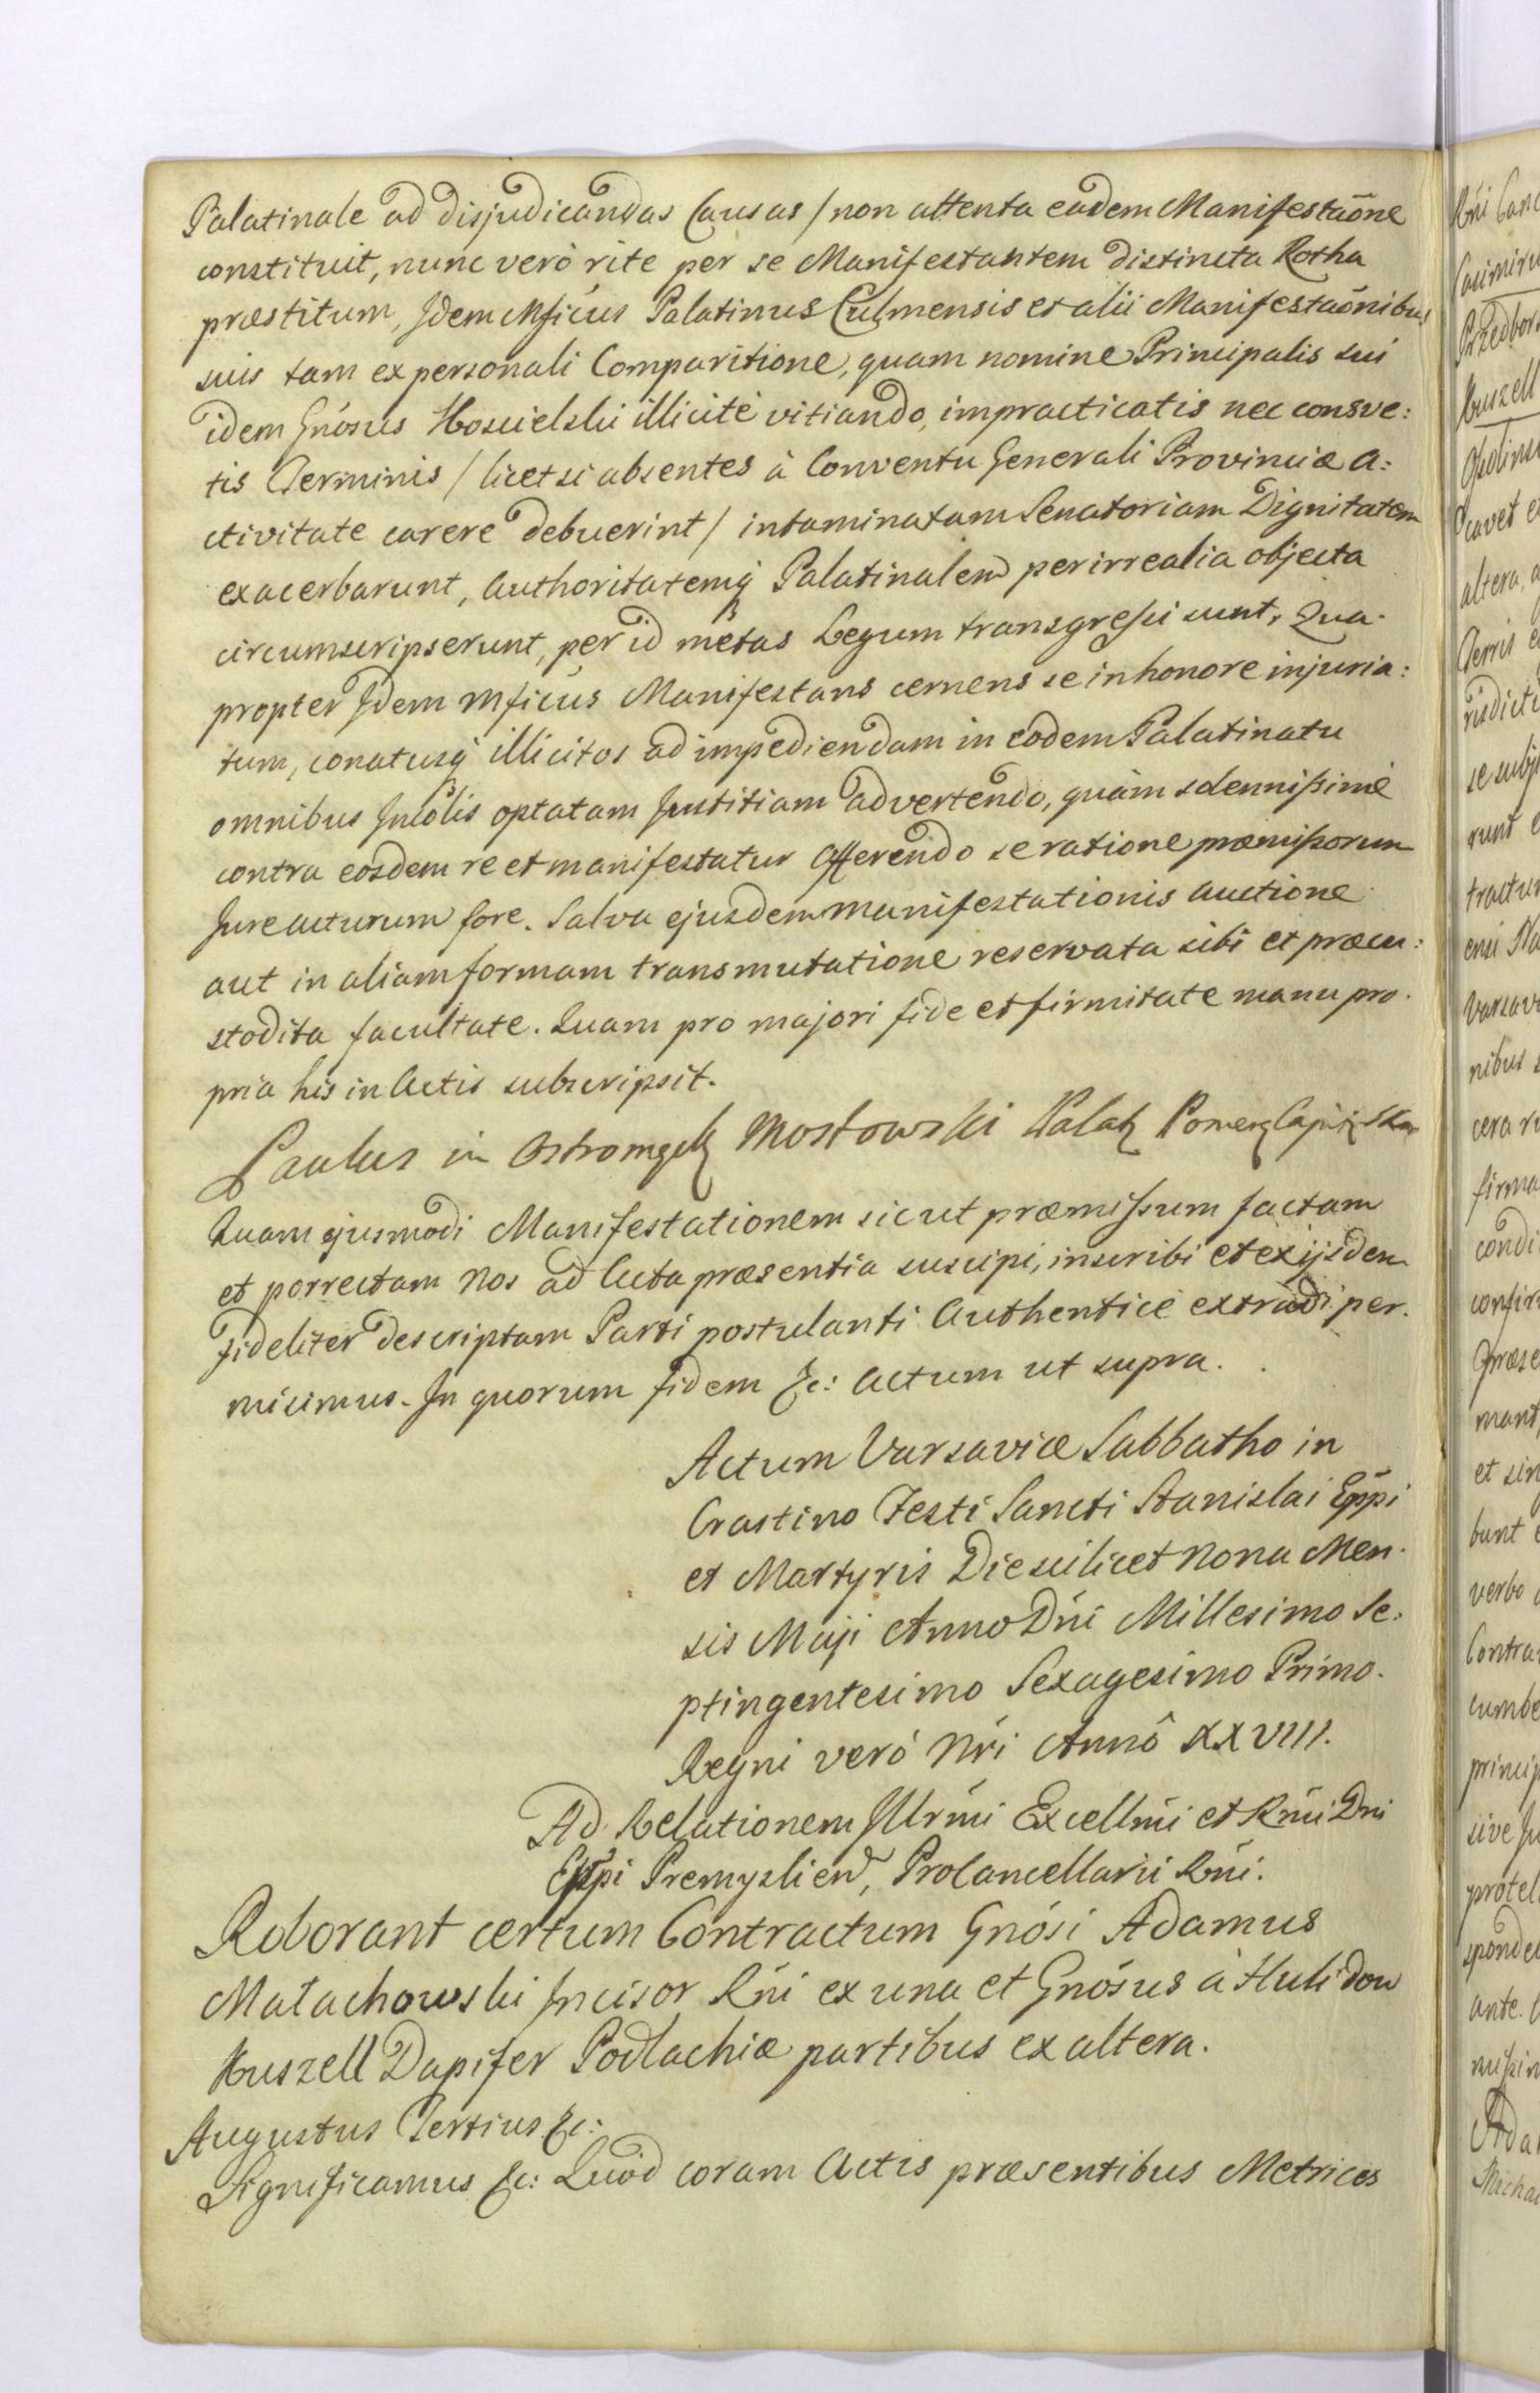 Palatinale ad disjudicandas Causas / non attenta eadem Manifestaõne
constituit, nunc verò rite per se Manifestantem distincta Rotha
præstitum, Idem Mficus Palatinus Culmensis et alii Manifestaõnibus
suis tam ex personali Comparitione, quam nomine Principalis sui
idem Gnosus Koscielski illicitè vitiando, impracticatis nec consve:
tis Terminis / licet si absentes à Conventu Generali Provinciæ A:
ctivitate carere debuerint / intaminatam Senatoriam Dignitatem
exacerbarunt, Authoritatemq Palatinalem per irrealia objecta
circumscripserunt, per id metas Legum transgressi sunt, Qua-
propter Idem Mficus Manifestans cernens se in honore injuria:
tum, conatusq illicitos ad impediendam in eodem Palatinatu
omnibus Incolis optatam Justitiam advertendo, quàm solennissimè
contra eosdem re et manifestatur Offerendo se ratione præmissorum
Jure acturum fore. Salva ejusdem Manifestationis auctione
aut in aliam formam transmutatione reservata sibi et præcu:
stodita facultate. Quam pro majori fide et firmitate manu pro-
pria his in Actis subscripsit.
Paulus in Mostowski Palat Pomer Capit
Quam ejusmodi Manifestationem sicut præmissum factam
et porrectam Nos ad Acta præsentia suscipi, inscribi et ex ijsdem
fideliter descriptam Parti postulanti Authenticè extradi per-
misimus. In quorum fidem &c: Actum ut supra.
Actum Varsaviæ Sabbatho in
Crastino Festi Sancti Stanislai Eppi
et Martyris Die scilicet Nona Men-
sis Maji Anno Dni Millesimo Se:
ptingentesimo Sexagesimo Primo.
Regni verò Nri Annô XXVIII.
Ad Relationem Illrmi Excellmi et Rmi Dni
Eppi Premyslien, Procancellarii Rni.
Roborant certum Contractum Gnosi Adamus
Małachowski Incisor Rni ex una et Gnosus à Hulidow
Kuszell Dapifer Podlachiæ partibus ex altera.
Augustus Tertius &c:
Significamus &c: Quod coram Actis præsentibus Metrices